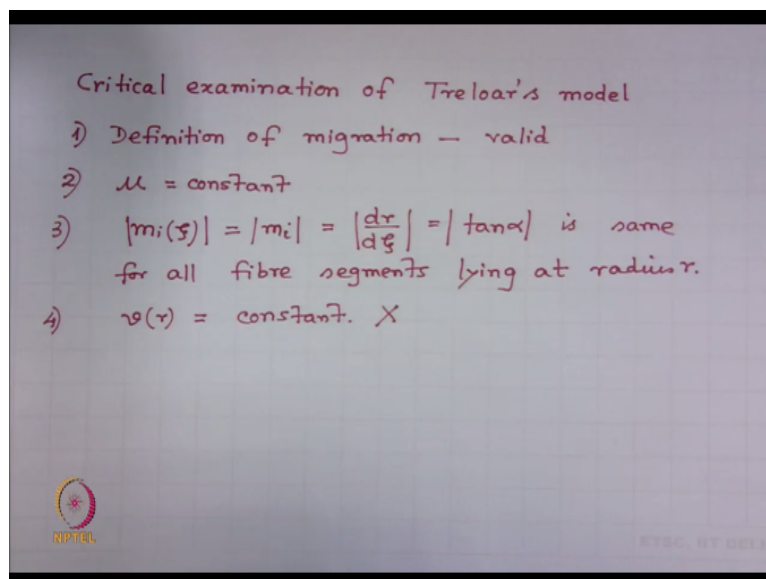 Critical examination of Treloar's model
1) Definition of migration — valid
2) μ = constant
3) |mᵢ(ξ)| = |mᵢ| = |dr/dξ| = |tanα| is same
for all fibre segments lying at radius r.
4) ϑ(r) = constant. X
NPTEL
ETSC, IIT DELHI